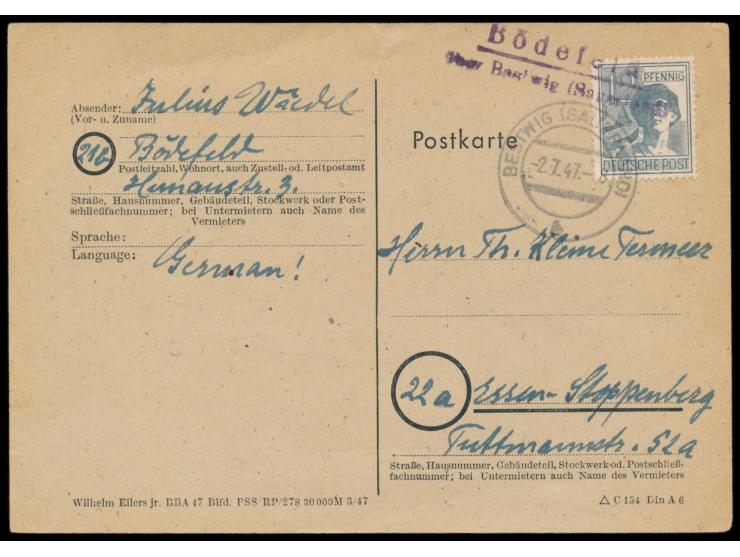 Bödefeld
über Bestwig (Sauerland)
12 PFENNIG
DEUTSCHE POST
BESTWIG (SAUERLAND)
-2.7.47.-
a
Absender: Julius Waedel
(Vor- u. Zuname)
21b Bödefeld
Postleitzahl, Wohnort, auch Zustell- od. Leitpostamt
Hunaustr. 3.
Straße, Hausnummer, Gebäudeteil, Stockwerk oder Post-
schließfachnummer; bei Untermietern auch Name des
Vermieters
Sprache:
Language: German!
Postkarte
Herrn Th. Kleine Termeer
22a Essen-Stoppenberg
Tuttmannstr. 52a
Straße, Hausnummer, Gebäudeteil, Stockwerk od. Postschließ-
fachnummer; bei Untermietern auch Name des Vermieters
Wilhelm Eilers jr. BBA 47 Blfd. PSS/RP/278 30 000M 3/47
△ C 154 Din A 6